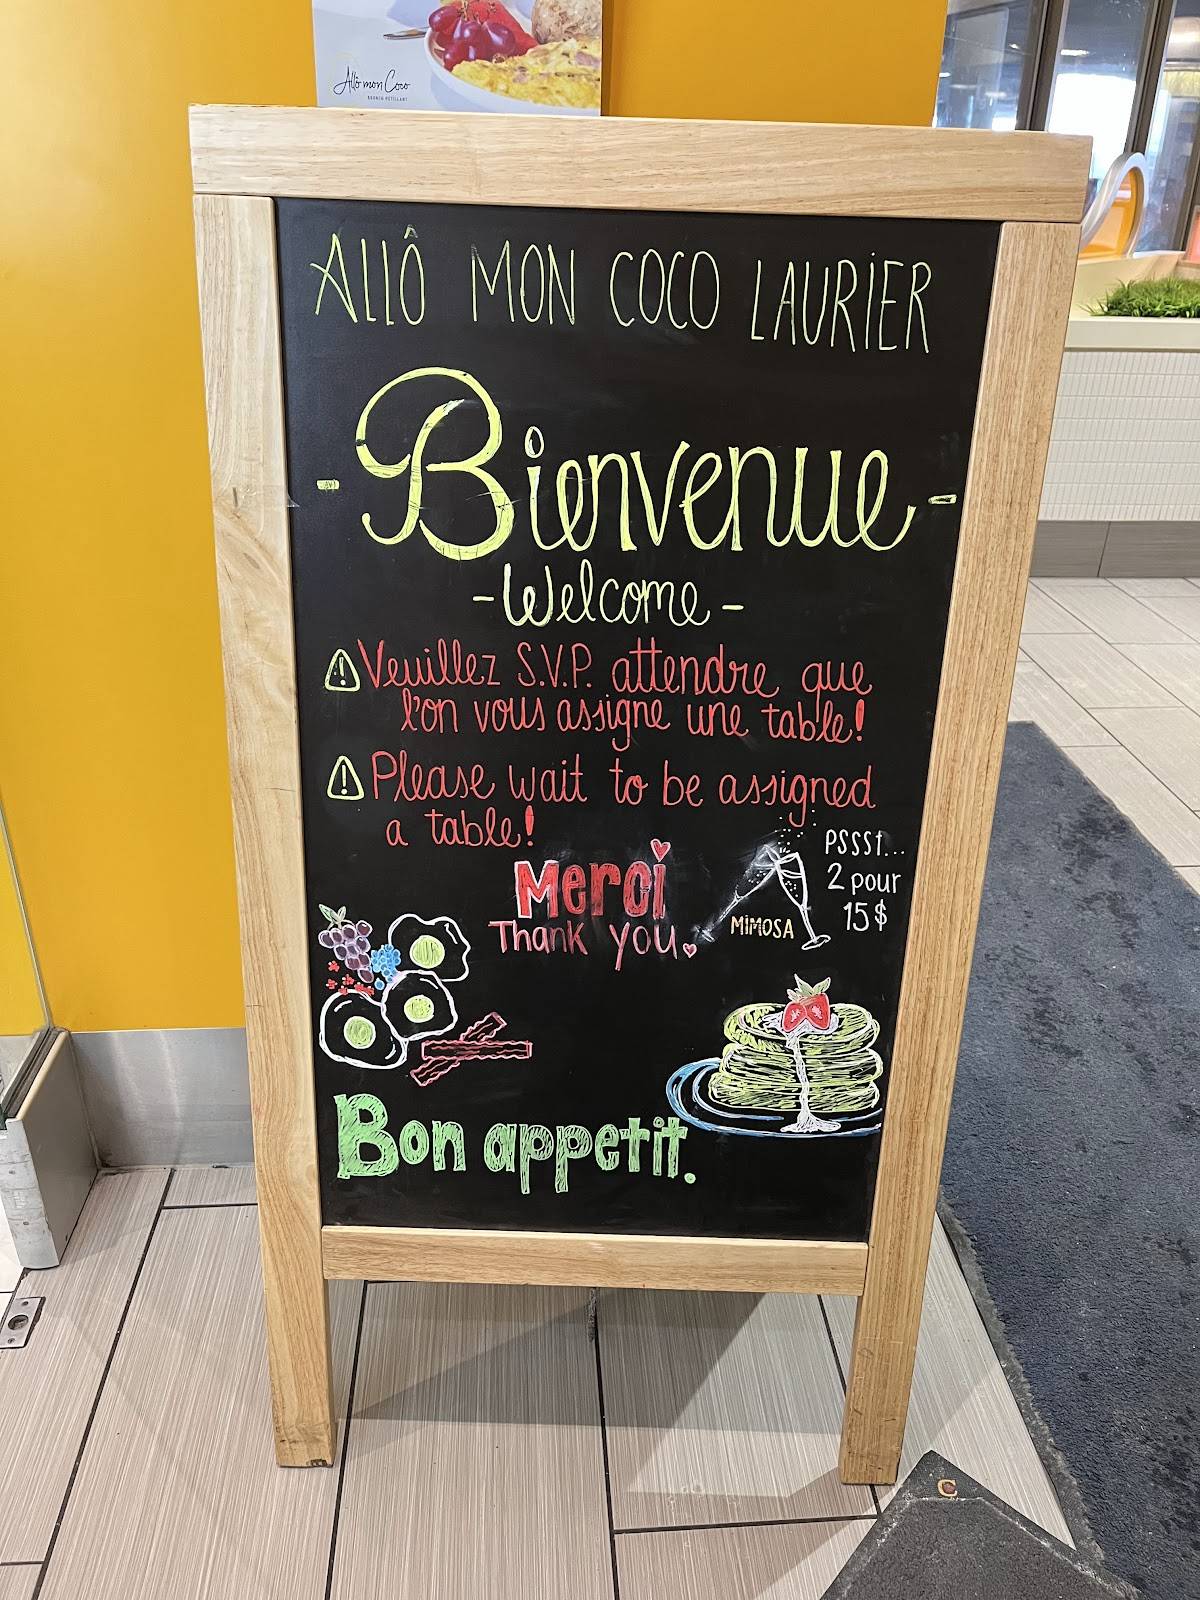 Allô mon Coco
BRUNCH PÉTILLANT
ALLÔ MON COCO LAURIER
- Bienvenue -
- Welcome -
Veuillez S.V.P. attendre que
l'on vous assigne une table!
Please wait to be assigned
a table!
Merci
Thank you.
MIMOSA
PSSST...
2 pour
15$
Bon appetit.
C